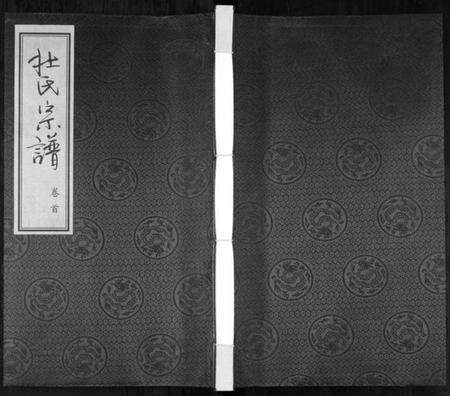 杜氏宗譜
卷首